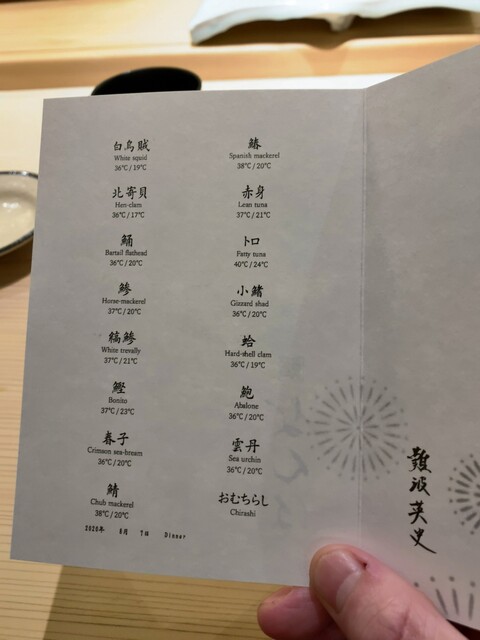 白烏賊
White squid
36℃ / 19℃
北寄貝
Hen-clam
36℃ / 17℃
鯒
Bartail flathead
36℃ / 20℃
鯵
Horse-mackerel
37℃ / 20℃
縞鯵
White trevally
37℃ / 21℃
鰹
Bonito
37℃ / 23℃
春子
Crimson sea-bream
36℃ / 20℃
鯖
Chub mackerel
38℃ / 20℃
2020年 6月 7日 Dinner
鰆
Spanish mackerel
38℃ / 20℃
赤身
Lean tuna
37℃ / 21℃
トロ
Fatty tuna
40℃ / 24℃
小鰭
Gizzard shad
36℃ / 20℃
蛤
Hard-shell clam
36℃ / 19℃
鮑
Abalone
36℃ / 20℃
雲丹
Sea urchin
36℃ / 20℃
おむちらし
Chirashi
難波英史